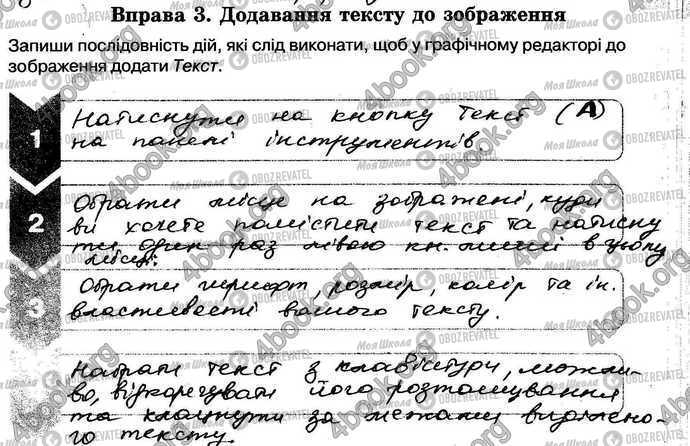 Вправа 3. Додавання тексту до зображення
Запиши послідовність дій, які слід виконати, щоб у графічному редакторі до
зображення додати Текст.
1
Натиснути на кнопку Текст (А)
на панелі інструментів.
2
Обрати місце на зображені, куди
ви хочете помістити текст та натисну
ти один раз лівою кн. миші в цьому
місці.
3
Обрати шрифт, розмір, колір та ін.
властивості вашого тексту.
Набрати текст з клавіатури, можли-
во, відкорегувати його розташування
та клацнути за межами виділено-
го тексту.
4book.org
Моя Школа
OBOZREVATEL